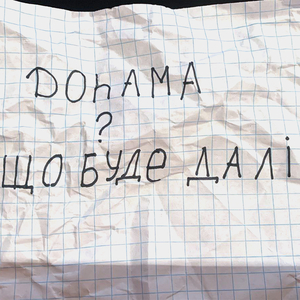 DOhAMA
?
ЩО БУДе ДАЛІ